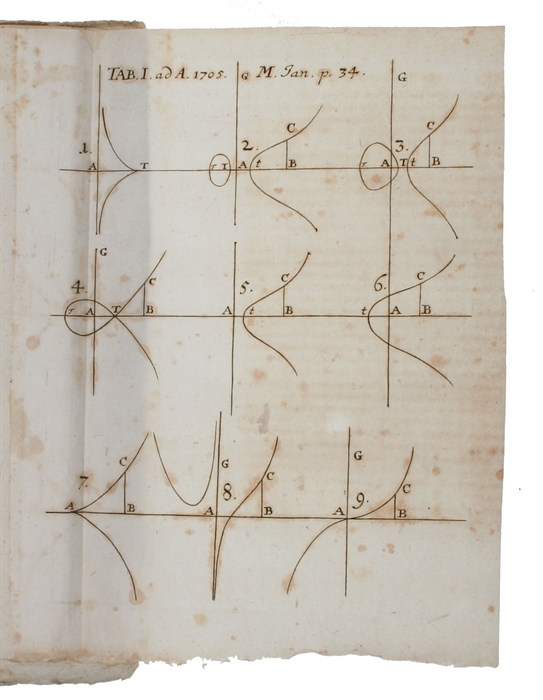 TAB. I. ad A. 1705. G M. Jan. p. 34. G
1. A T
2. T T A t C B
3. T A T t C B
G
4. T A T C B
5. A t C B
6. t A C B
7. A C B
8. A G C B
9. A G C B